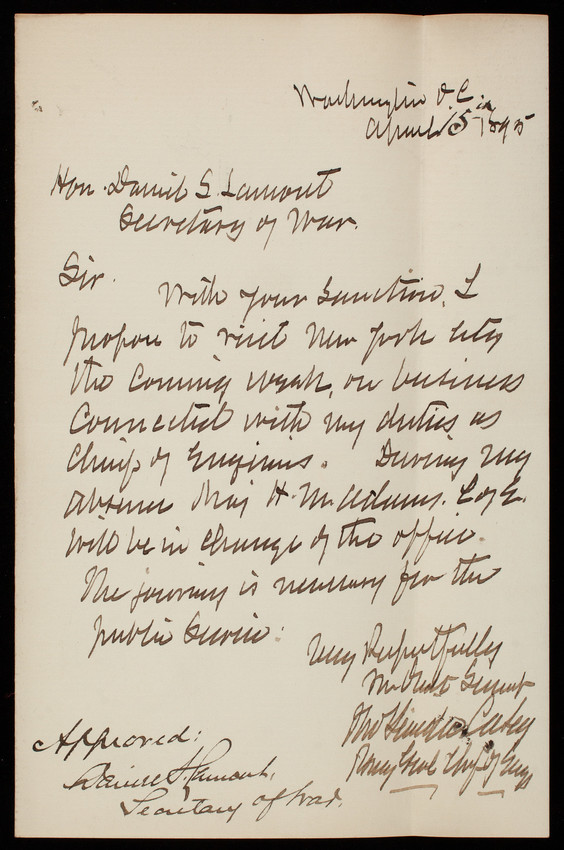 Washington D.C.
April 15th 1895
Hon. Daniel S. Lamont
Secretary of War.
Sir.
With your Sanction, I
propose to visit New York city
the coming week, on business
connected with my duties as
Chief of Engineers. During my
absence Maj H. M. Adams. C of E.
will be in charge of the office.
The journey is necessary for the
public Service.
Very Respectfully
Your Obedt Servant
Thos Lincoln Casey
Brig Genl Chief of Engs
Approved:
Daniel S. Lamont,
Secretary of War.